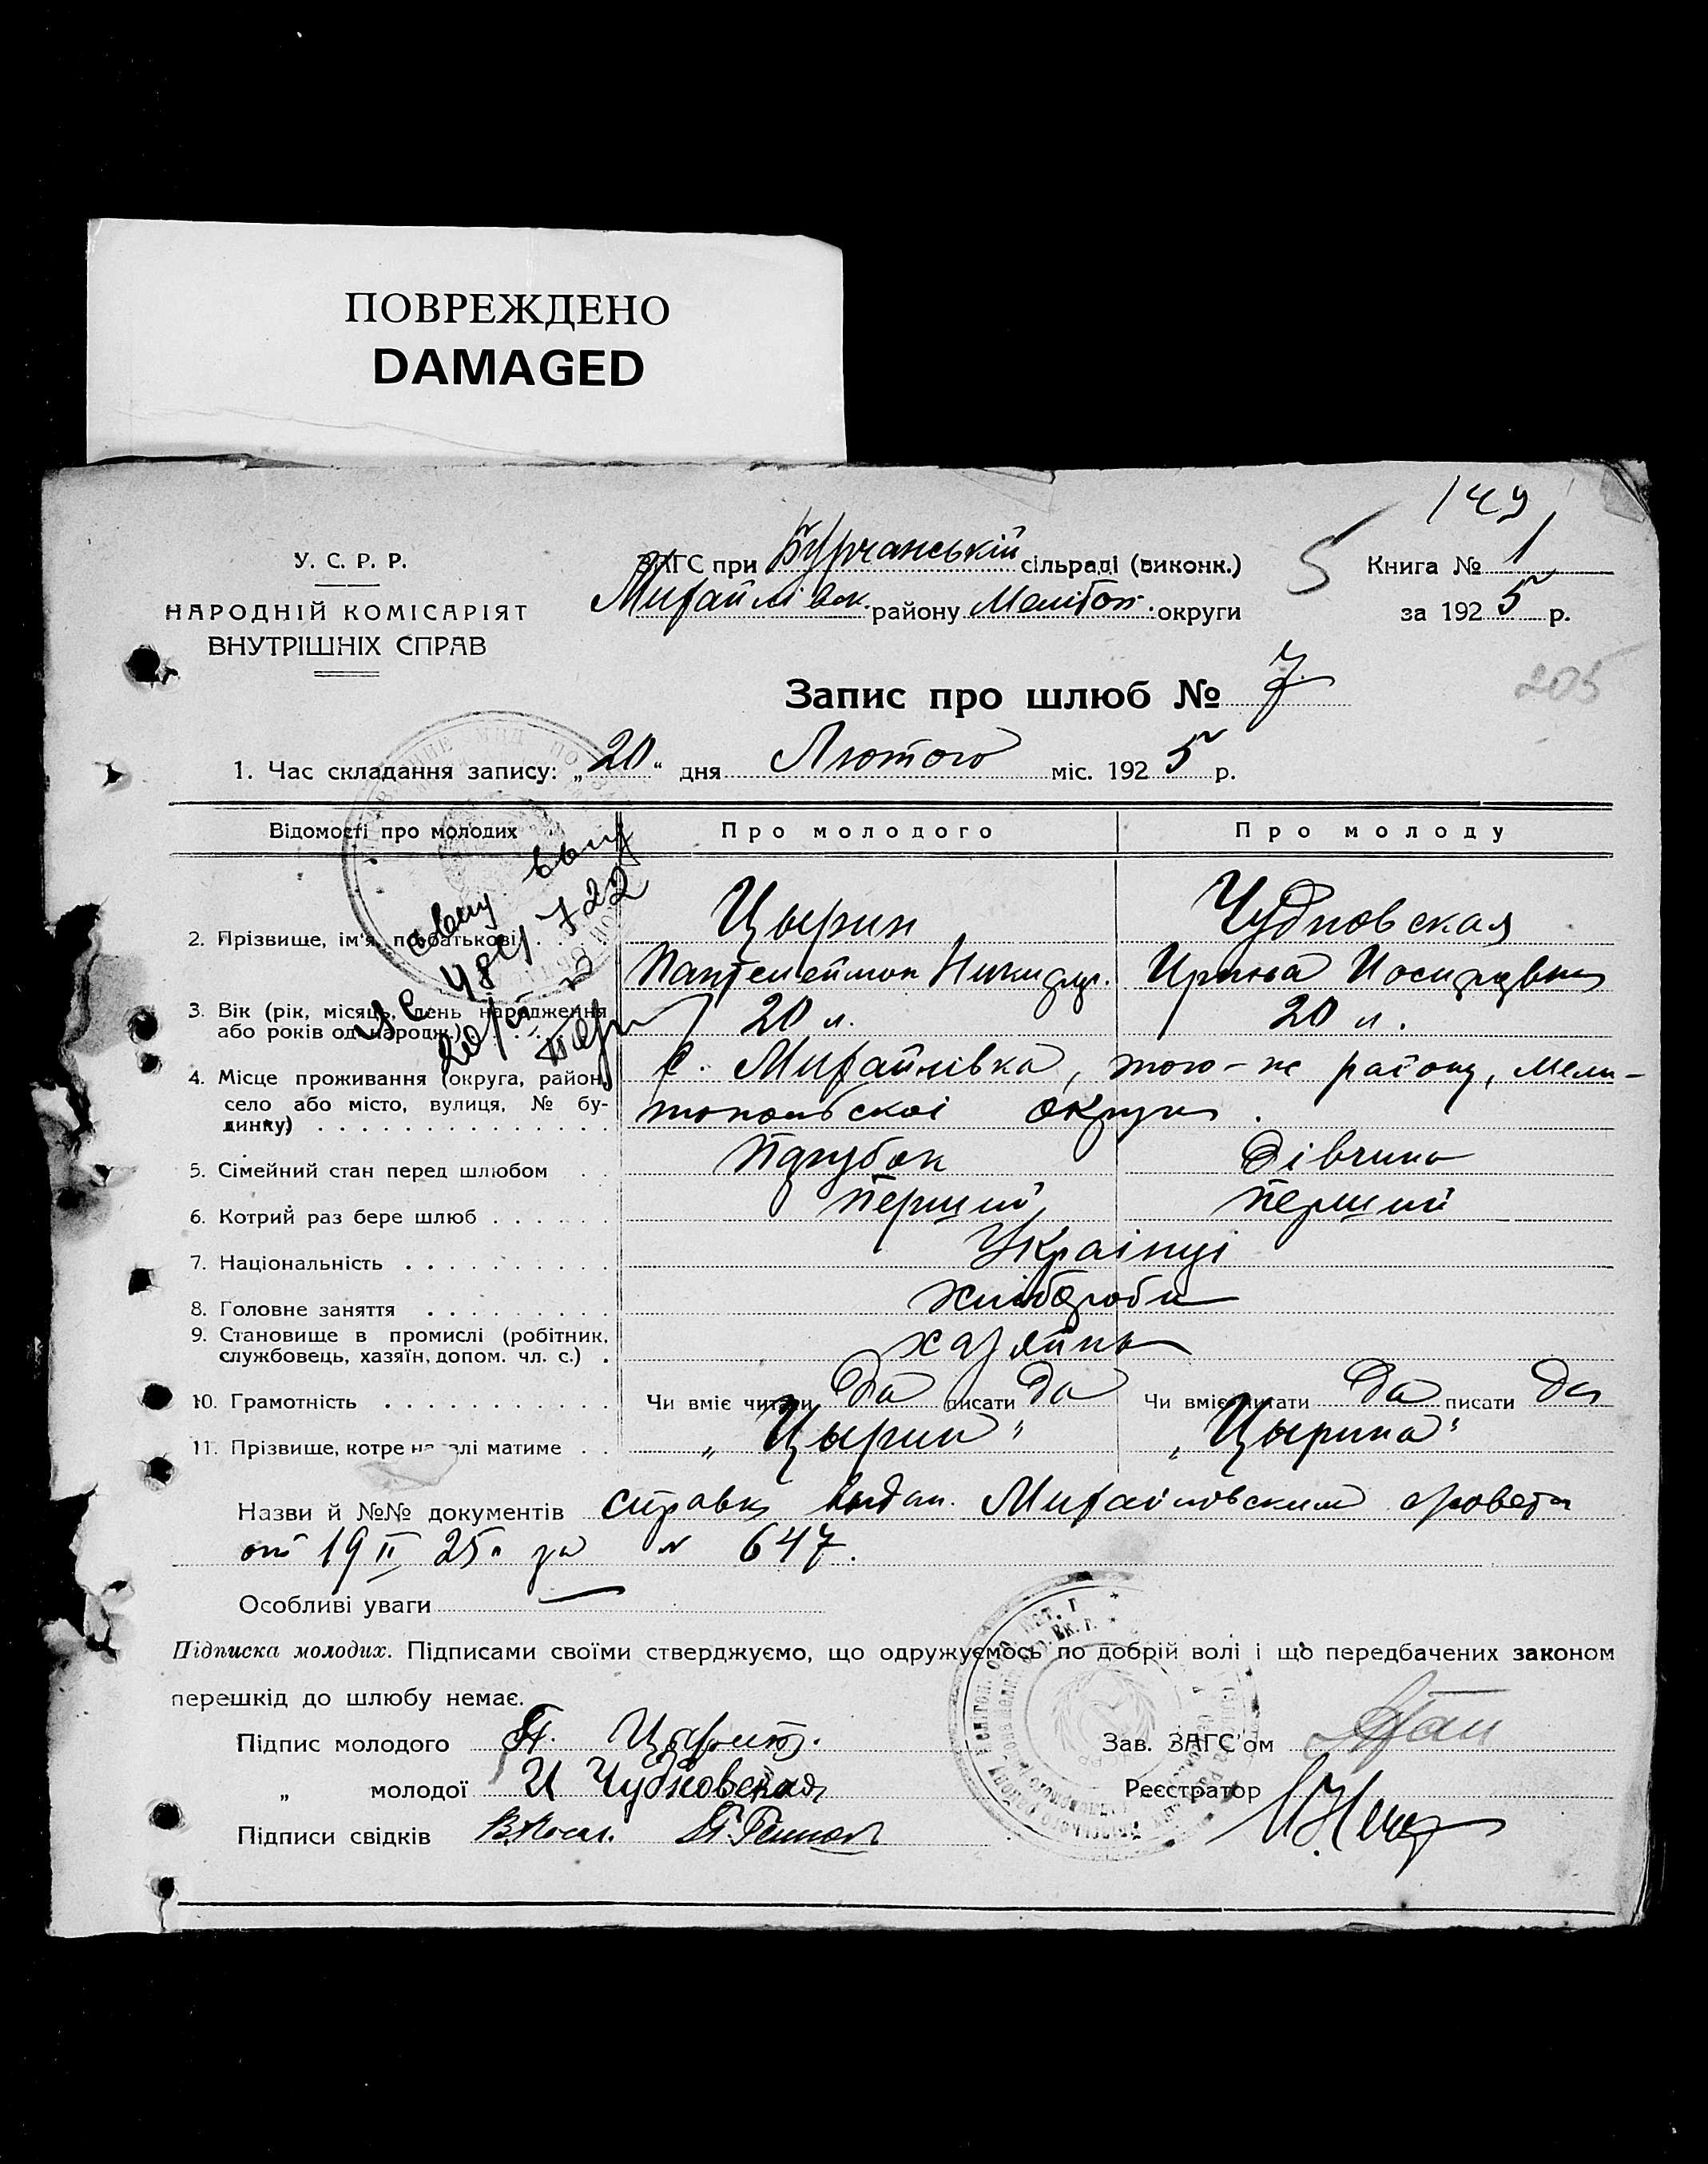 ПОВРЕЖДЕНО
DAMAGED
149
У. С. Р. Р.
НАРОДНІЙ КОМІСАРІЯТ
ВНУТРІШНІХ СПРАВ
ЗАГС при Бурчанській сільраді (виконк.)
Михайлівск. району Меліtoп. округи
5
Книга № 1
за 1925 р.
Запис про шлюб № 7
205
1. Час складання запису: „20“ дня Лютого міс. 1925 р.
Відомості про молодих Про молодого Про молоду
2. Прізвище, ім'я, по батькові . . Цырин Чудновская
Пантелеймон Никидр. Ирина Иосиповна
3. Вік (рік, місяць, день народження або років од народж.) 20 л. 20 л.
4. Місце проживання (округа, район, с. Михайлівка, того-ж району, Мели-
село або місто, вулиця, № бу- топольскої округи.
динку)
5. Сімейний стан перед шлюбом Парубок Дівчина
6. Котрий раз бере шлюб Перший Перший
7. Національність Українці
8. Головне заняття хлібороби
9. Становище в промислі (робітник,
службовець, хазяїн, допом. чл. с.) . хазяїни
10. Грамотність Чи вміє читати да писати да Чи вміє читати да писати да
11. Прізвище, котре матиме . . „Цырин“ „Цырина“
Назви й №№ документів справка выдан. Михайловским
от 19 II 25 г. за № 647.
Особливі уваги —
Підписка молодих. Підписами своїми стверджуємо, що одружуємось по добрій волі і що передбачених законом
перешкід до шлюбу немає.
Підпис молодого П.
Зав. ЗАГС'ом
„ молодої И Чудновская
Реєстратор
Підписи свідків